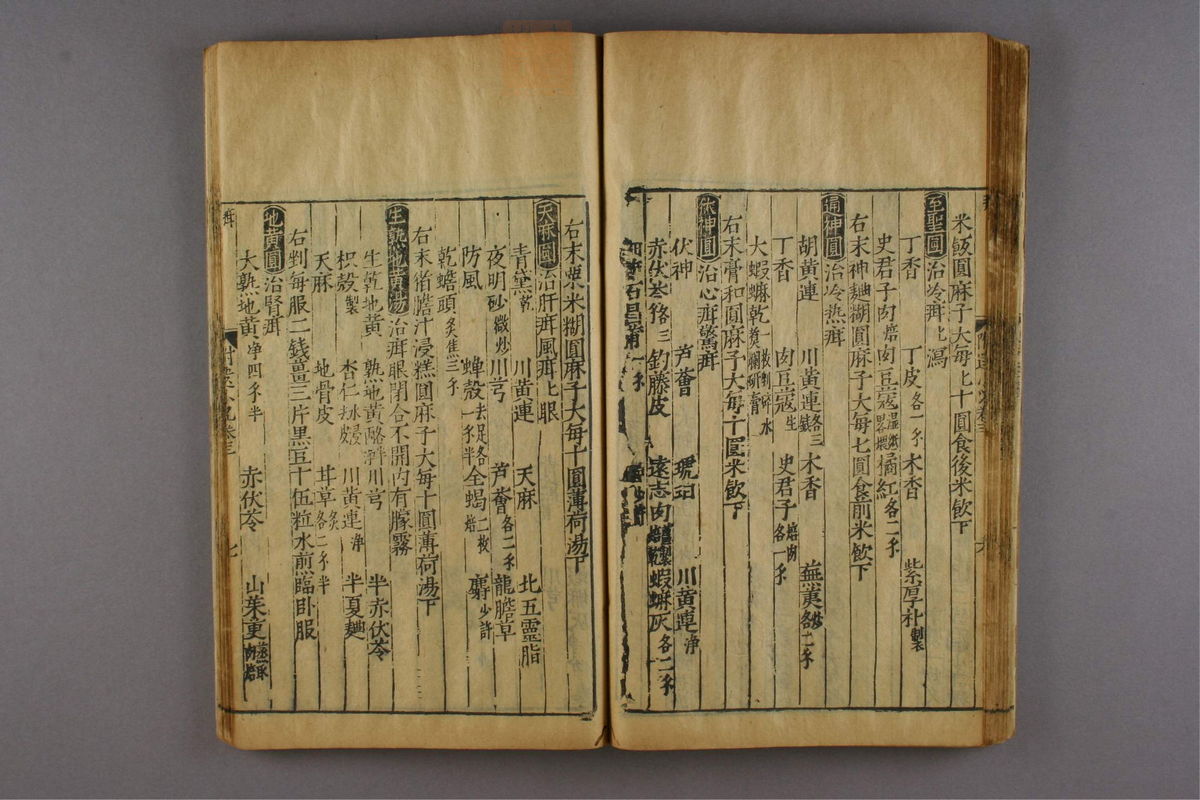 米飯圓麻子大每七十圓食後米飲下
至聖圓 治冷疳疳瀉
丁香 丁皮各一分 木香 紫厚朴製
史君子肉焙 肉豆蔻 橘紅各二分
右末神麯糊圓麻子大每七圓食前米飲下
通神圓 治冷热疳
胡黃連 川黃連各三錢 木香 蕪荑各二分
丁香 肉豆蔻生 史君子焙肉各一分
大蝦蟆乾 爛研膏
右末膏和圓麻子大每十圓米飲下
茯神圓 治心疳驚疳
伏神 芦薈 琥珀 川黃連净
赤伏苓各三分 釣藤皮 遠志肉 蝦蟆灰各二分
石菖蒲一分
右末粟米糊圓麻子大每十圓薄荷湯下
天麻圓 治肝疳風疳疳眼
青黛乾 川黃連 天麻 北五靈脂
夜明砂微炒 川芎 芦薈各二分 龍膽草
防風 蟬殼去足各一分半 全蝎二枚焙 麝少許
乾蟾頭炙焦三分
右末猪膽汁浸糕圓麻子大每十圓薄荷湯下
生熟地黃湯 治疳眼閉合不開内有朦霧
生乾地黃 熟地黃 川芎 半赤伏苓
枳殼製 杏仁 川黃連净 半夏麯
天麻 地骨皮 甘草炙各二分半
右剉每服二錢薑三片黑豆十伍粒水煎臨卧服
地黃圓 治腎疳
大熟地黃净四分半 赤伏苓 山茱萸
七